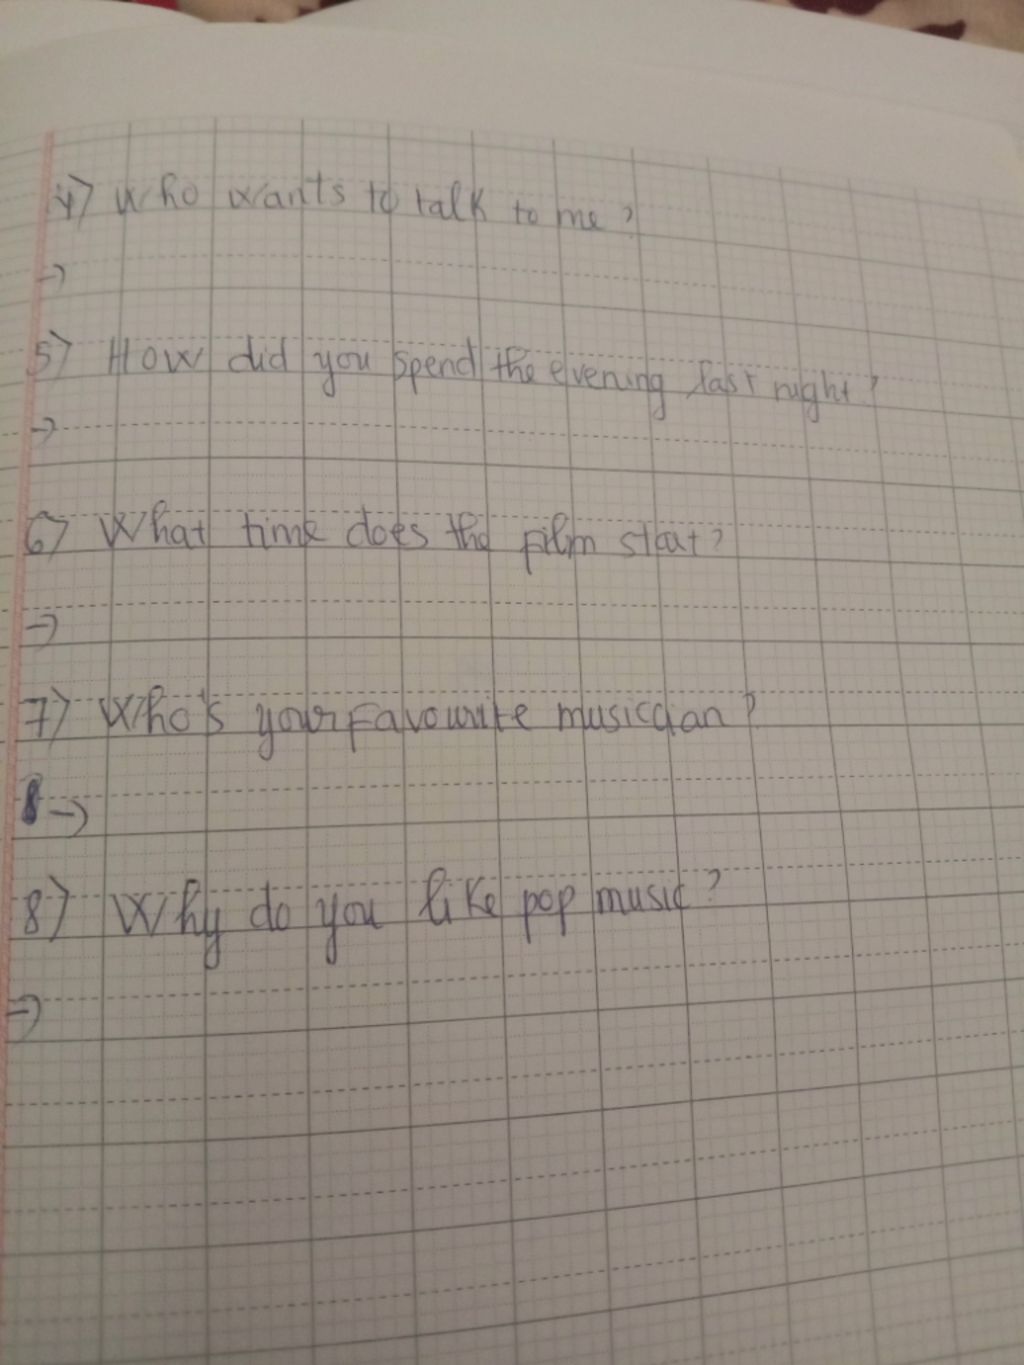 4) Who wants to talk to me ?
→
5) How did you spend the evening last night ?
→
6) What time does the film start ?
→
7) Who's your favourite musician ?
8 →
8) Why do you like pop music ?
→